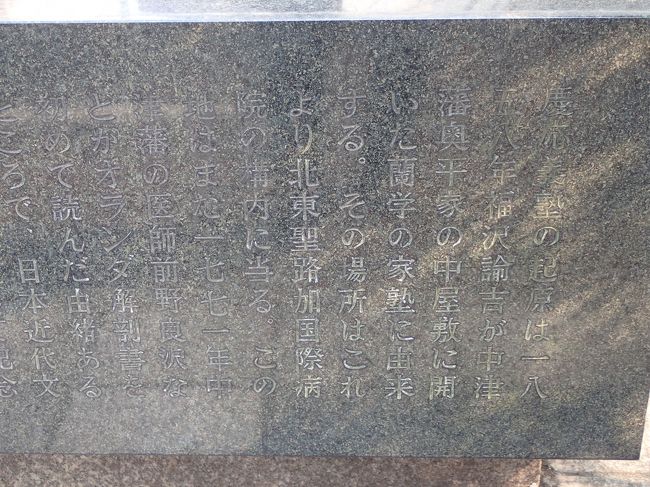 慶応義塾の起原は一八
五八年福沢諭吉が中津
藩奥平家の中屋敷に開
いた蘭学の家塾に由来
する。その場所はこれ
より北東聖路加国際病
院の構内に当る。この
地はまた一七七一年中
津藩の医師前野良沢な
どがオランダ解剖書を
初めて読んだ由緒ある
ところで、日本近代文
記念